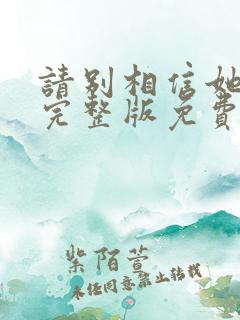 請别相信她
完整版免費
紫陌萱
未经同意禁止转载